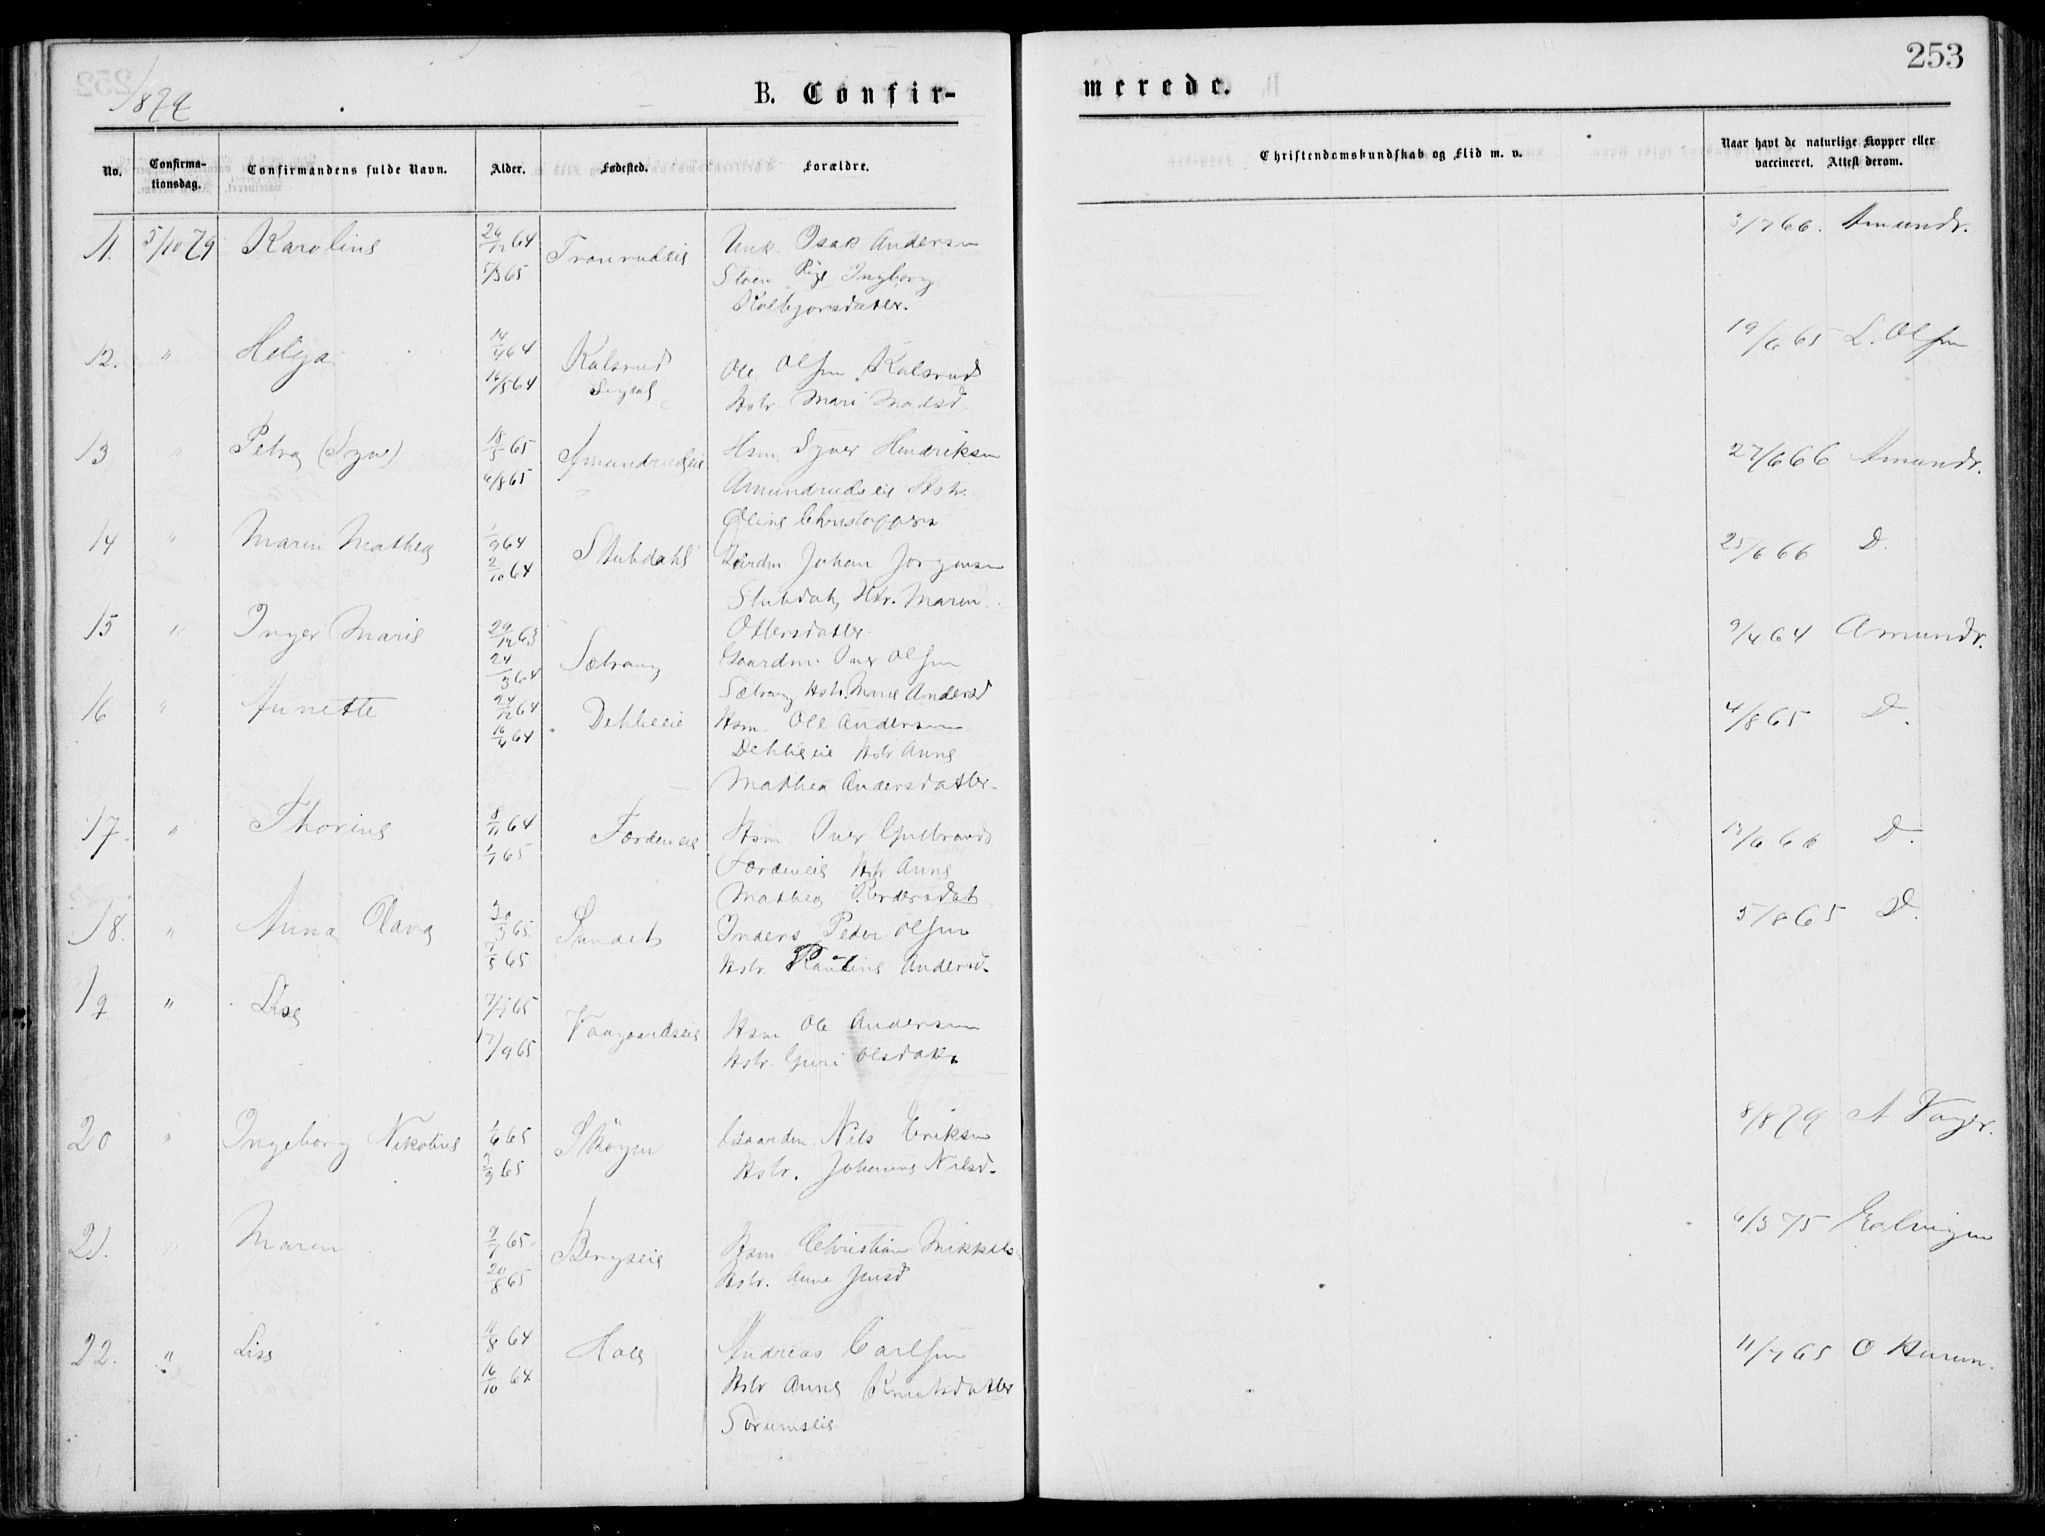 253
1879
B. Confir-
merede.
No.
Confirma-
tionsdag.
Confirmandens fulde Navn.
Alder.
Fødested.
Forældre.
Christendomskundskab og Flid m. v.
Naar havt de naturlige Kopper eller
vaccineret. Attest derom.
11. 5/10 79 Karoline 5/3 65 Tranrudeie Unk. Isak Andersen
Pige Ingeborg
Kolbjornsdatter.
3/7 66. Amundr.
12. " Helga 14/4 64 16/5 64 Kalsrud
Sigdal
Ole Olsen Kalsrud
Hstr. Mari Madsd.
19/6 65 L. Olsen
13 " Petra (Syv) 18/5 65 6/8 65 Amundrudseie Hsm. Syver Hendriksen
Amundrudseie Hstr.
Oline Christophersd
27/6 66 Amundr.
14 " Maren Mathea 1/9 64 2/10 64 Stubdahl Gaardm Johan Jorgensen
Stubdal, Hstr. Maren
Ottersdatter.
25/6 66 D.
15 " Inger Marie 29/12 63 24/3 64 Sætrang Gaardm. Iver Olsen
Sætrang Hstr. Marie Andersd
9/4 64 Amundr.
16 " Annette Dehlieie Hsm. Ole Andersen
Dehlieie Hstr Anne
Mathea Andersdatter.
4/8 65 D.
17. " Thorine 8/11 64 1/1 65 Hsm. Iver Gulbrands
Hstr Anne
Mathea
D.
18. " Anna Olava 7/5 65 Sundet Inders Peder Olsen
Hstr. Pauline Andersd.
5/8 65 D.
19 " Lise 17/9 65 Vaagaardseie Hsm Ole Andersen
Hstr. Guri Olsdatter
20 " Ingeborg Nikoline 65 Skøyen Gaardm. Nils Eriksen
Hstr. Johanne Nilsd.
8/8 79 A Vager.
21. " Maren 9/7 65 20/8 65 Bergseie Hsm Christian Mikkels
Hstr. Anne Jensd
6/3 75
22. " Lise 11/8 64 16/10 64 Hole Andreas Carlsen
Hstr Anne Knutsdatter
Sørumseie
11/7 65 O Hurum.